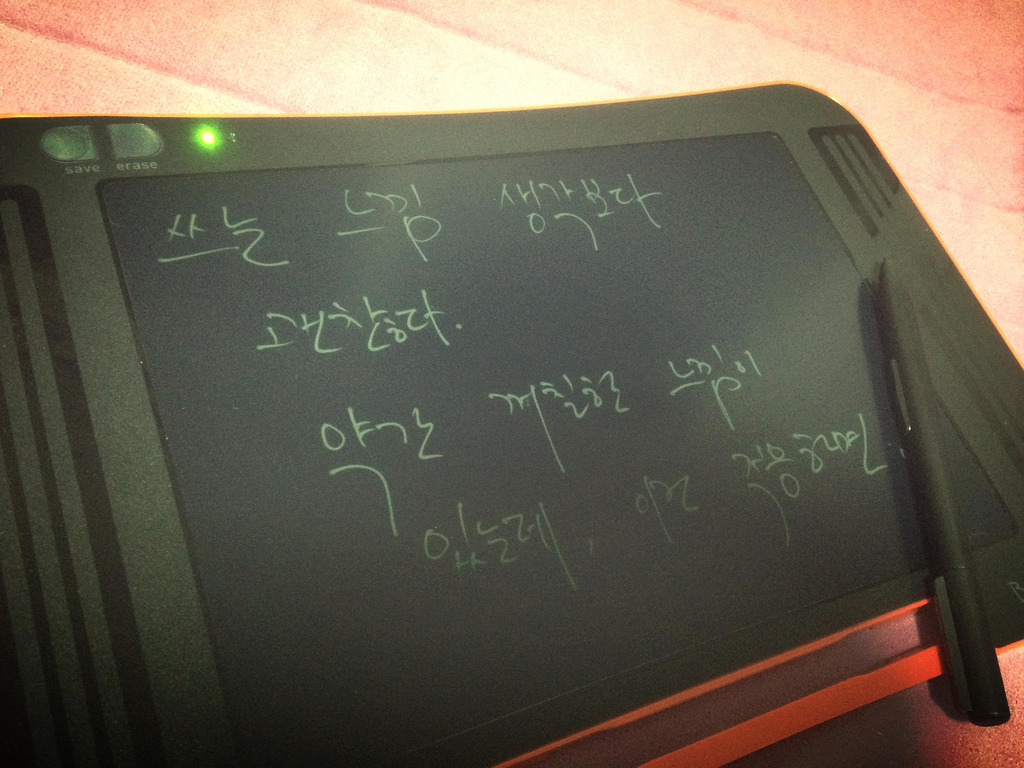 save erase
쓰는 느낌 생각보다
괜찮다.
약간 꺼칠한 느낌이
있는데, 이건 적응하면.